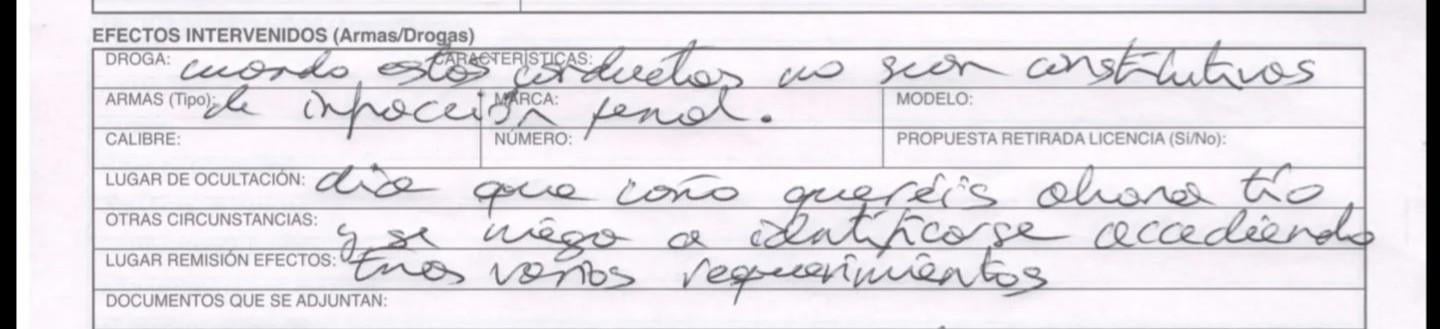 EFECTOS INTERVENIDOS (Armas/Drogas)
DROGA: CARACTERÍSTICAS: cuando estas conductas no sean constitutivas
ARMAS (Tipo): MARCA: MODELO: de infracción penal.
CALIBRE: NÚMERO: PROPUESTA RETIRADA LICENCIA (Sí/No):
LUGAR DE OCULTACIÓN: dice que coño queréis ahora tío
OTRAS CIRCUNSTANCIAS: y se niega a identificarse accediendo
LUGAR REMISIÓN EFECTOS: tras varios requerimientos
DOCUMENTOS QUE SE ADJUNTAN: